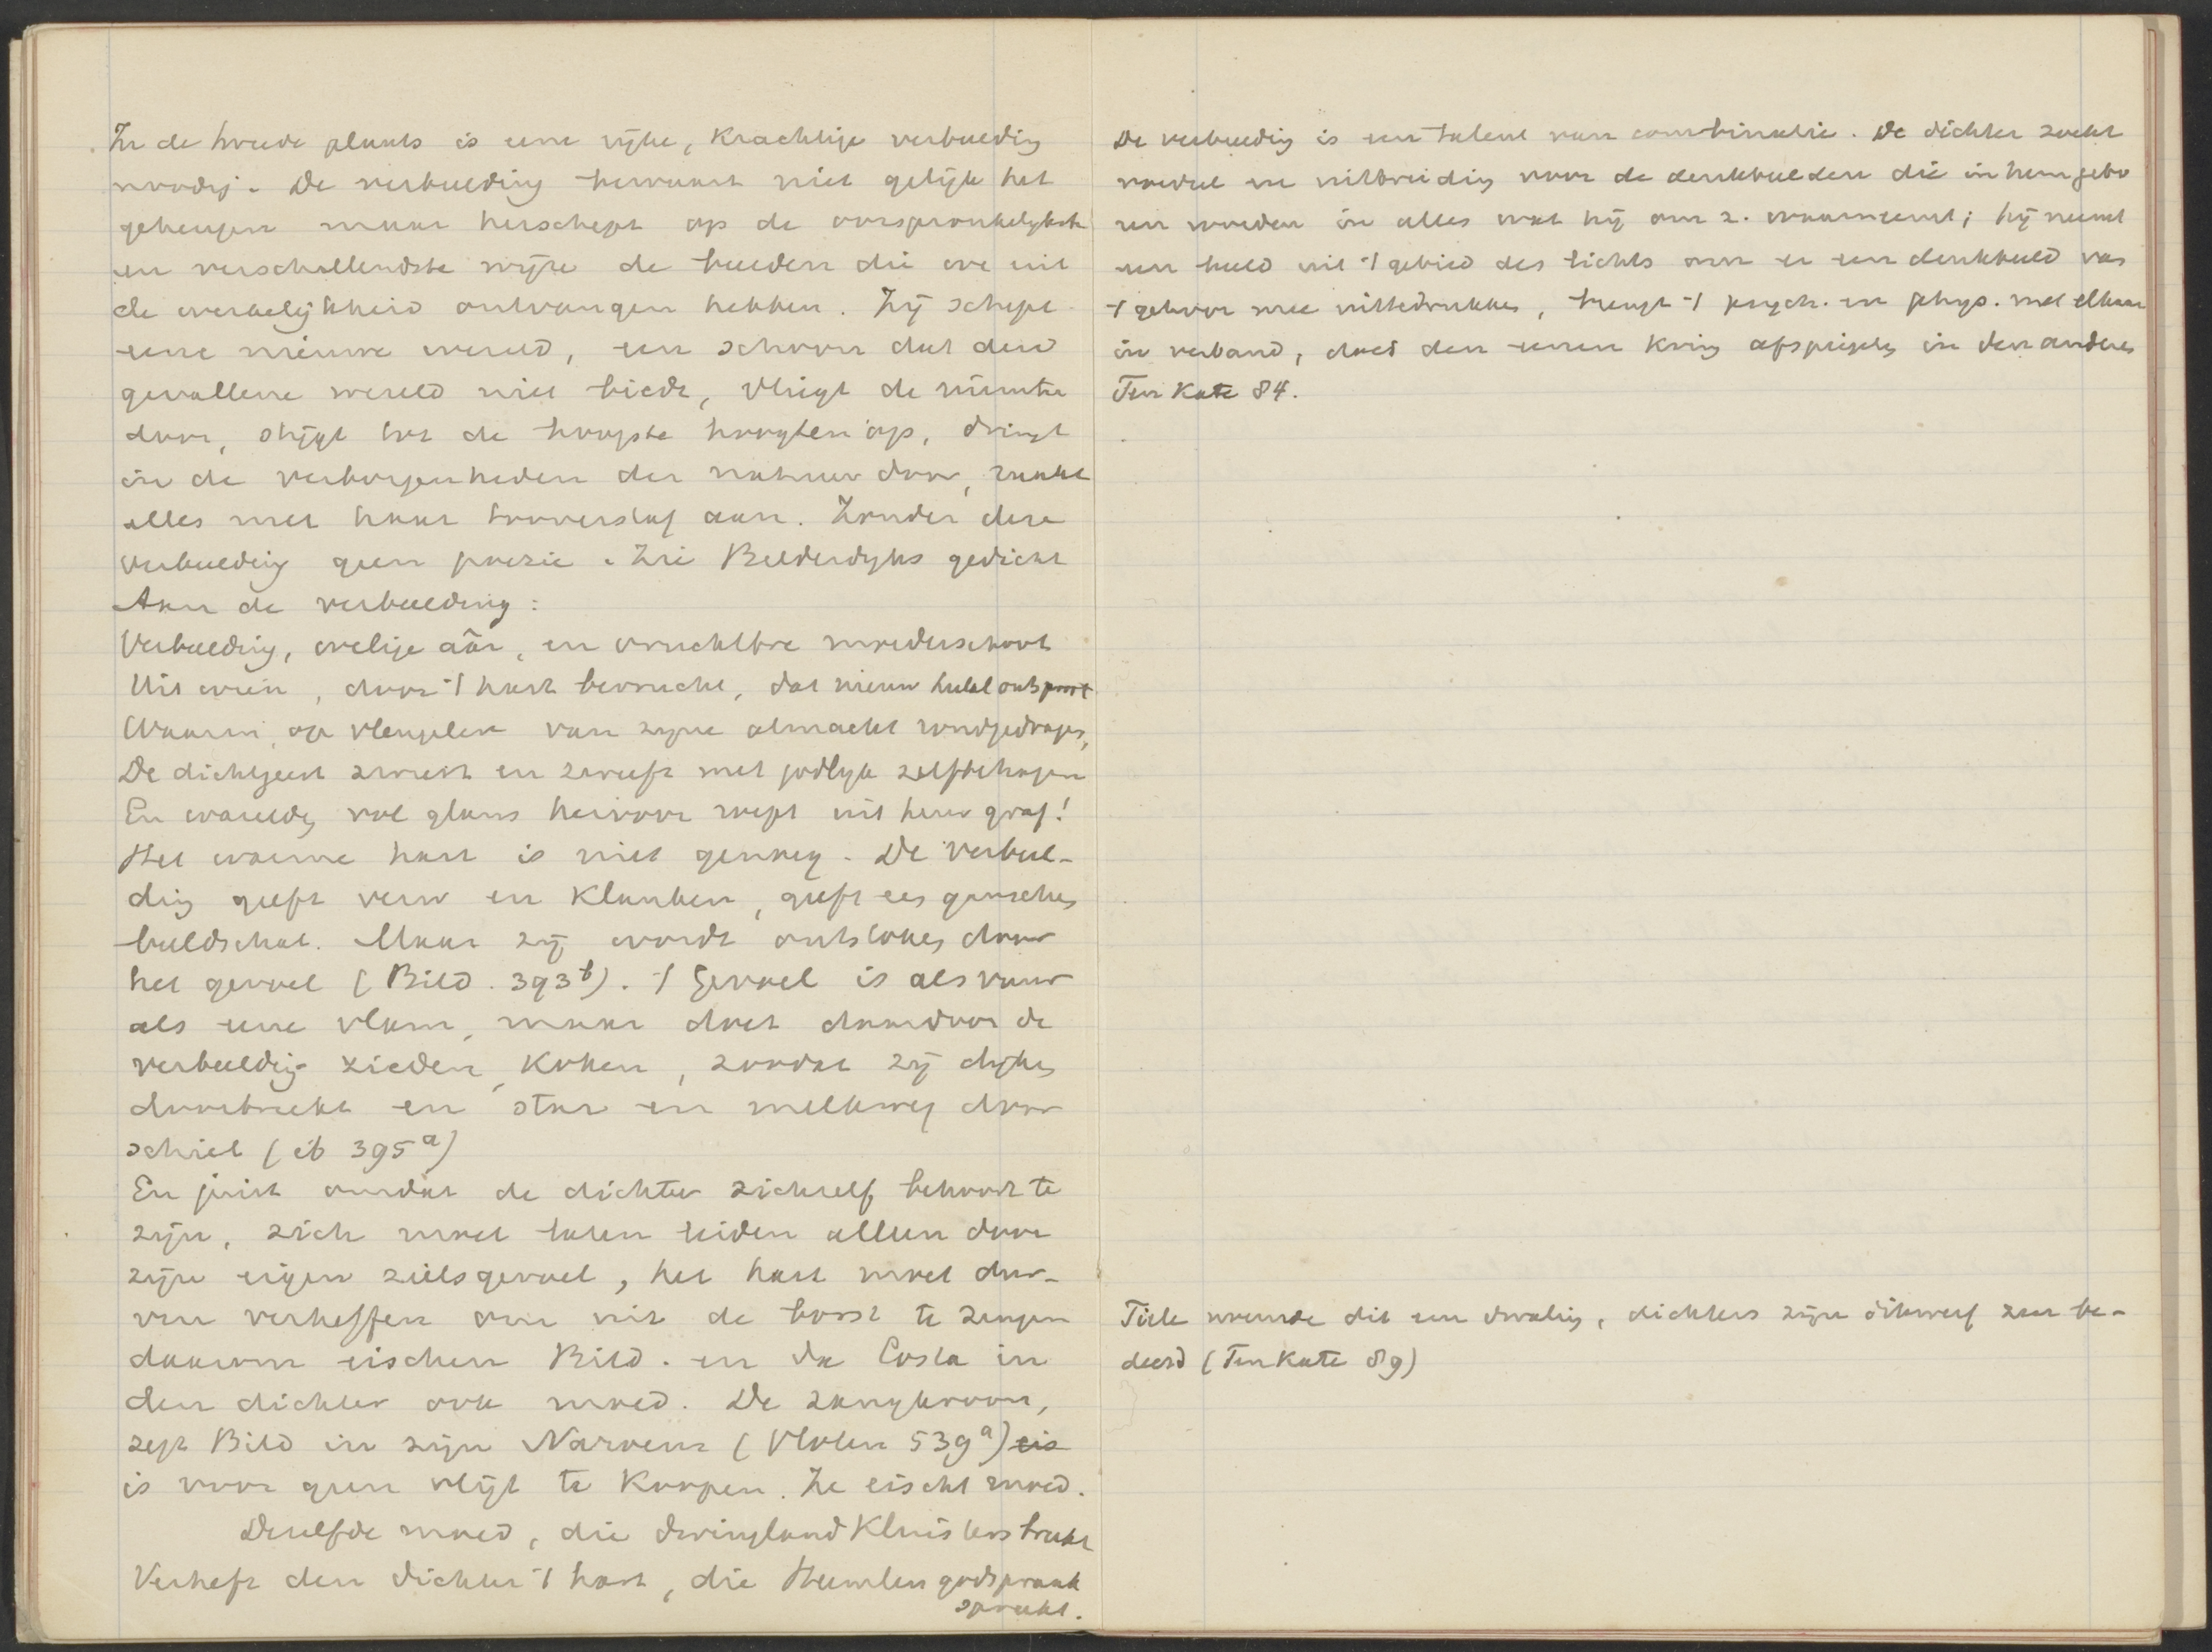 In de tweede plaats is eene rijke, krachtige verbeelding
noodig. De verbeelding bewaart niet gelijk het
geheugen maar herschept op de oorspronkelijkste
en verschillendste wijze de beelden die we uit
de werkelijkheid ontvangen hebben. Zij schept
eene nieuwe wereld, een schoon dat deze
gevallene wereld niet biedt, vliegt de ruimte
door, stijgt tot de hoogste hoogten op, dringt
in de verborgenheden der natuur door, raakt
alles met haar tooverstaf aan. Zonder deze
verbeelding geen poezie. Zie Bilderdyks gedicht
Aan de verbeelding:
Verbeelding, welige aâr, en vruchtbre moederschoot
Uit wien, door 't hart bevrucht, dat nieuw heelal ontsproot
Waarin, op vleugelen van zijne almacht rondgedragen,
De dichtgeest zweeft en zweeft met godlyk zelfbehagen
En waerelden vol glans hervoor roept uit heur graf!
Het warme hart is niet genoeg. De verbeel-
ding geeft verw en klanken, geeft een ganschen
beeldschat. Maar zij wordt ontstoken door
het gevoel (Bild. 393b). 't Gevoel is als vuur
als eene vlam, maar doet daardoor de
verbeelding zieden, koken, zoodat zij dijken
doorbreekt en star en melkweg door
schiet (ib 395a)
En juist omdat de dichter zichzelf behoort te
zijn, zich moet laten leiden alleen door
zijn eigen zielsgevoel, het hart moet dur-
ven verheffen om uit de borst te zingen
daarom eischen Bild. en da Costa in
den dichter ook moed. De zangkroon,
zegt Bild in zijn (Vloten 539a) eis
is voor geen vlijt te koopen. Ze eischt moed.
Dezelfde moed, die dwingland kluisters breekt
Verheft den dichter 't hart, die Heemlen godspraak
spreekt.
De verbeelding is een talent van combinatie. De dichter zoekt
voedsel en uitbreiding voor de denkbeelden die in hem gebo
ren worden in alles wat hij om z. waarneemt; hij neemt
een beeld uit 't gebied des lichts om er een denkbeeld van
't gehoor mee uittedrukken, brengt 't psych. en phys. met elkaar
in verband, doet den eenen kring afspiegelen in den anderen
Ten Kate 84.
Tiele noemde dit een dwaling, dichters zijn dikwerf zeer be-
deesd (Ten Kate 89)